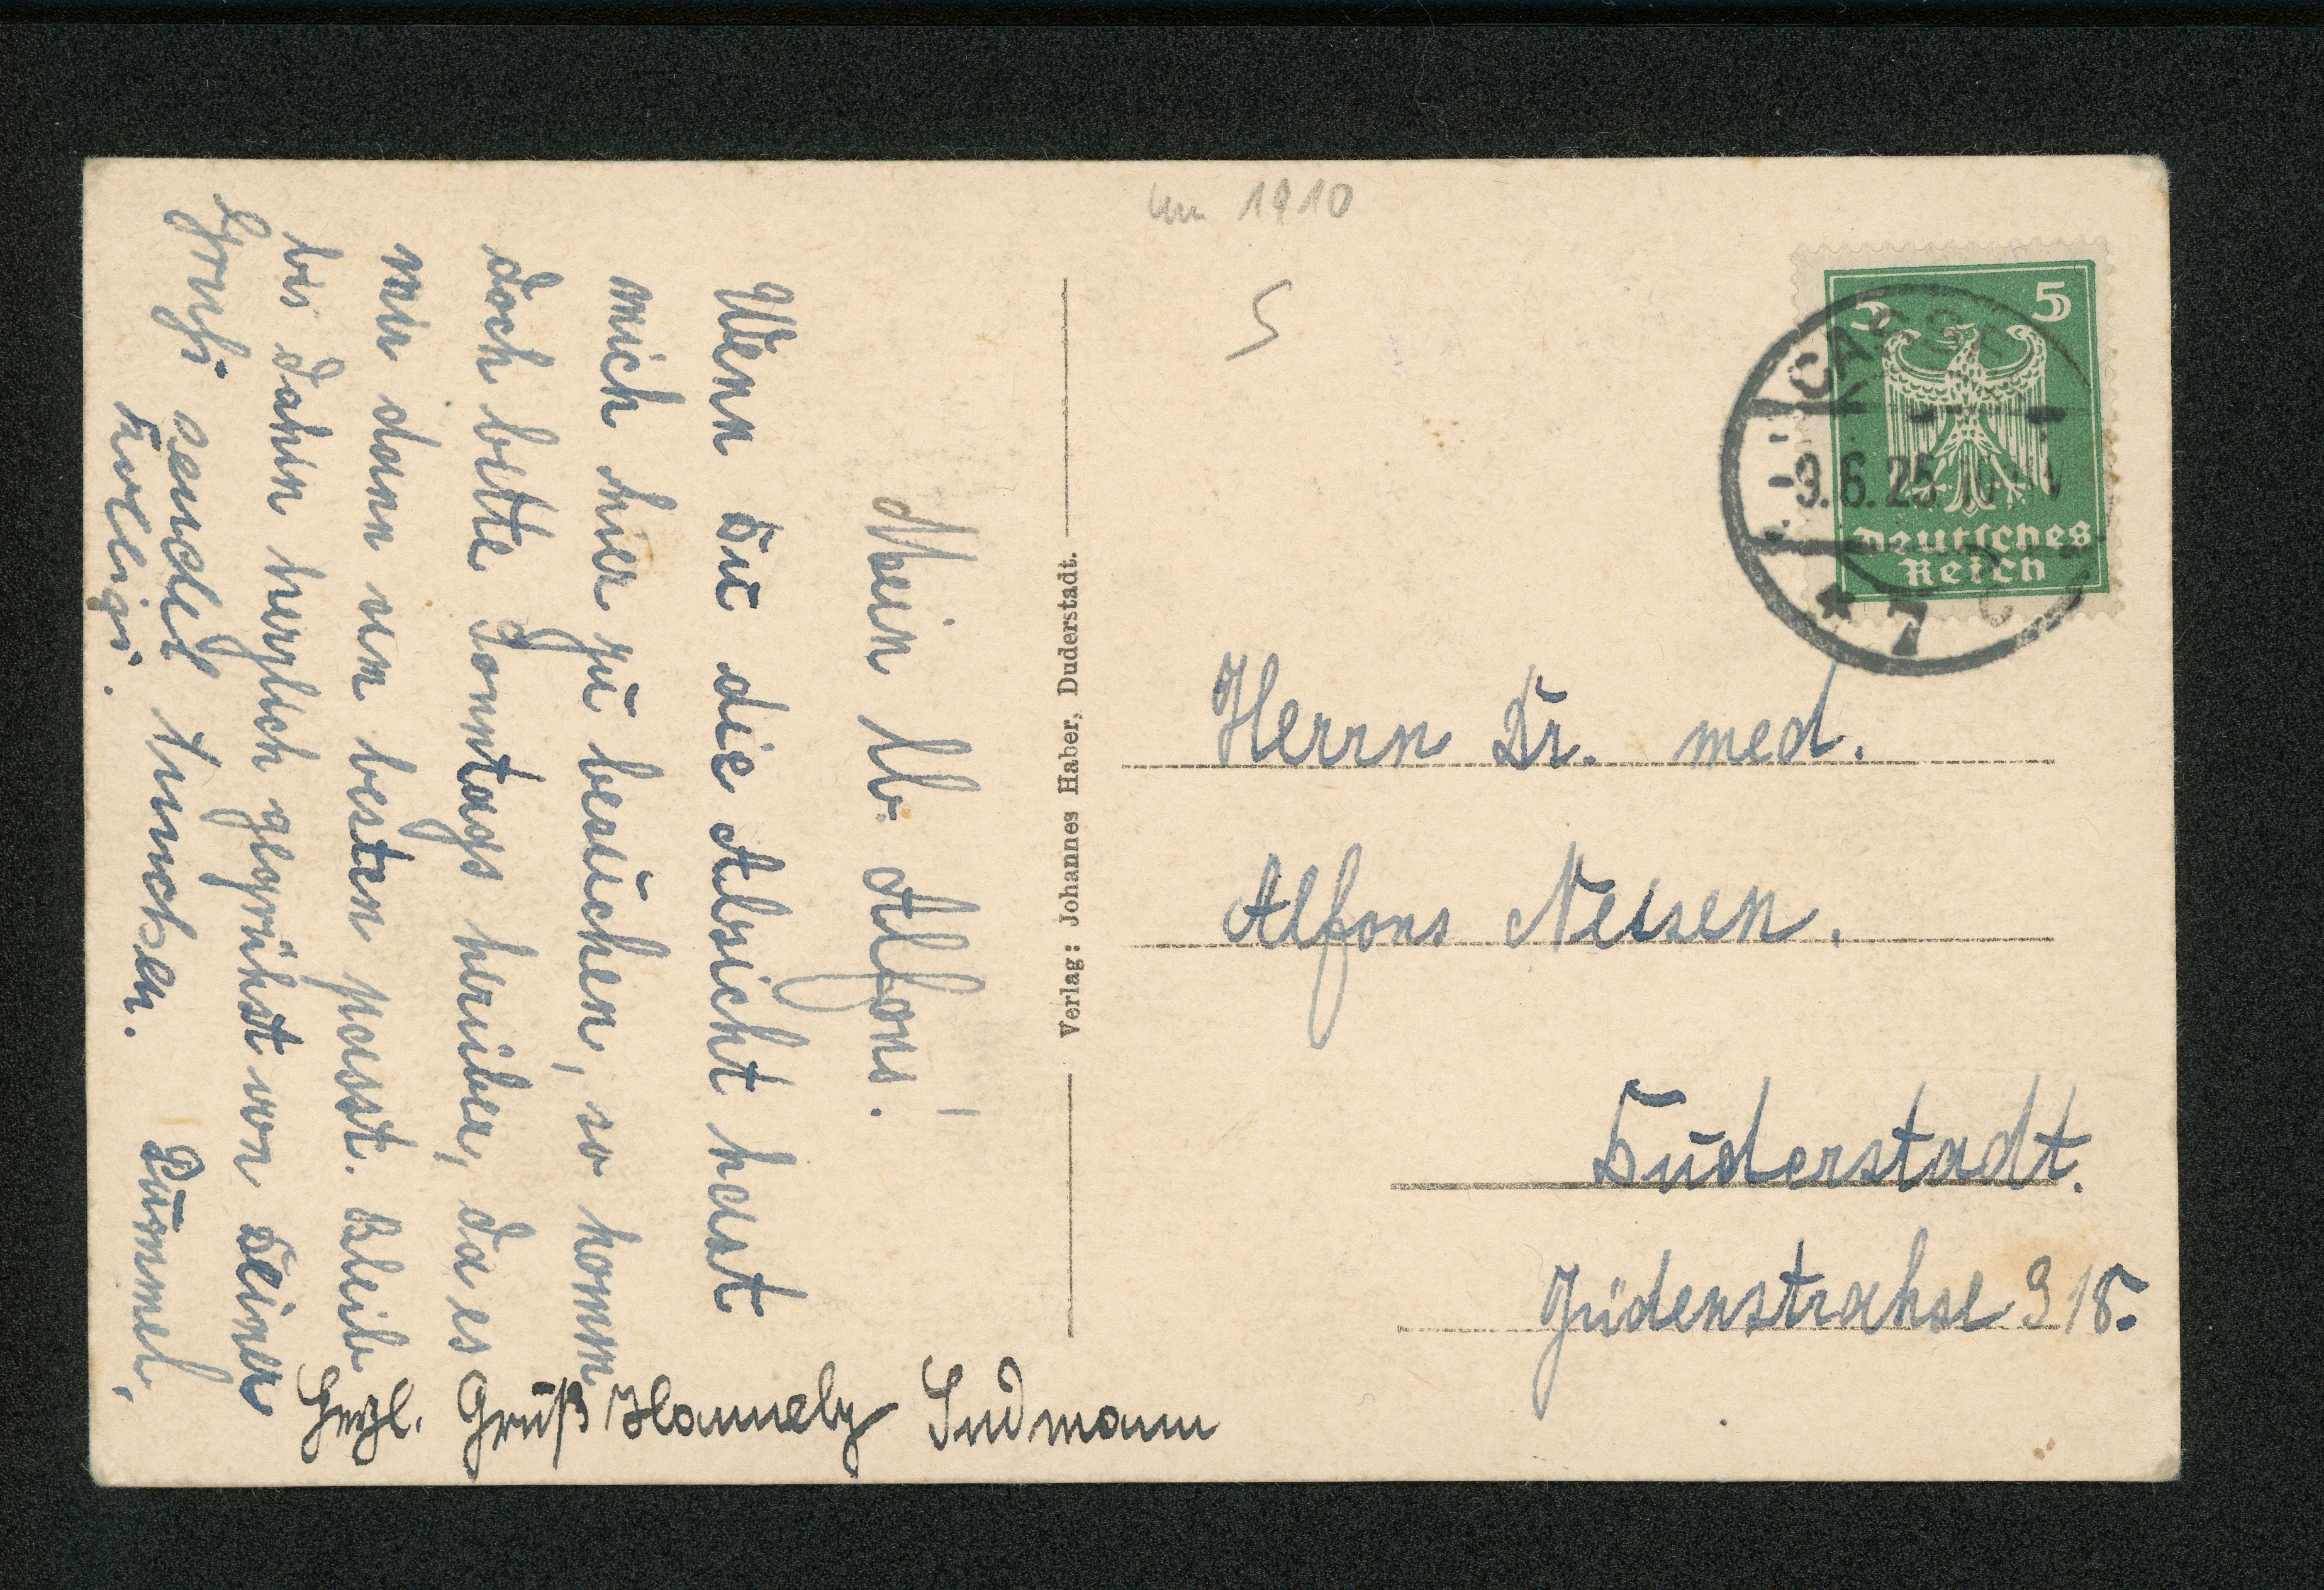 um 1910
5 5
CASSEL
9.6.25. 10-11 V
* 7
Deutsches
Reich
Herrn Dr. med.
Alfons Neisen.
Duderstadt.
Judenstrahse 918.
Verlag: Johannes Haber, Duderstadt.
Mein lb. Alfons!
Wenn Du die Absicht hast
mich hier zu besuchen, so komm
doch bitte Sonntags herüber, da es
mir dann am besten passt. Bleib
bis dahin herzlich gegrühst von Deiner
sendet
Herzl. Gruß Sudmann